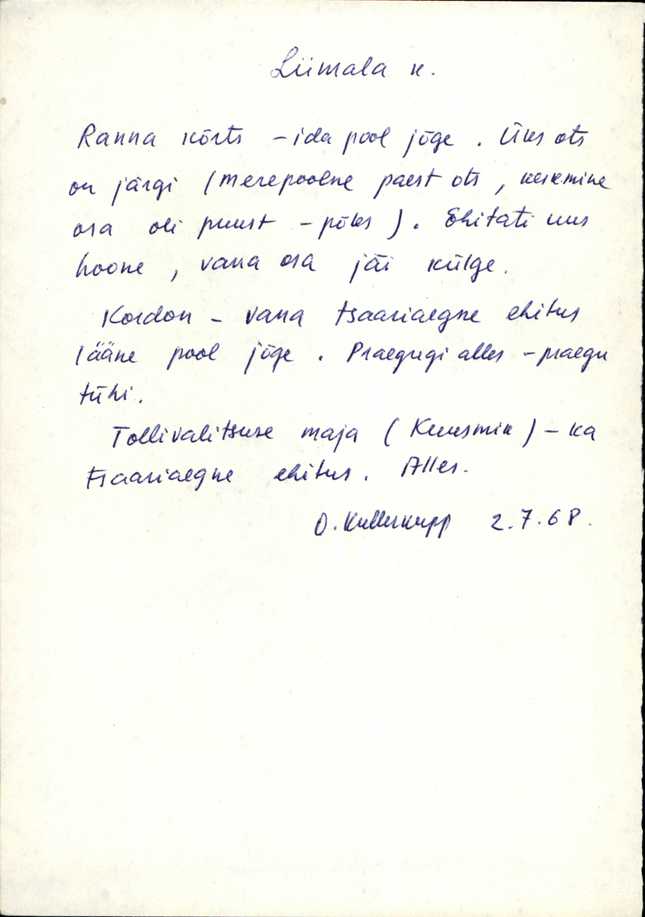 Liimala k.
Ranna kõrts – ida pool jõge. Üks ots
on järgi (merepoolne paest ots, keskmine
osa oli puust – põles). Ehitati uus
hoone, vana osa jäi külge.
Kordon – vana tsaariaegne ehitus
lääne pool jõge. Praegugi alles – praegu
tühi.
Tollivalitsuse maja (Kuusmik) – ka
tsaariaegne ehitus. Alles.
O. Kullerkupp 2.7.68.